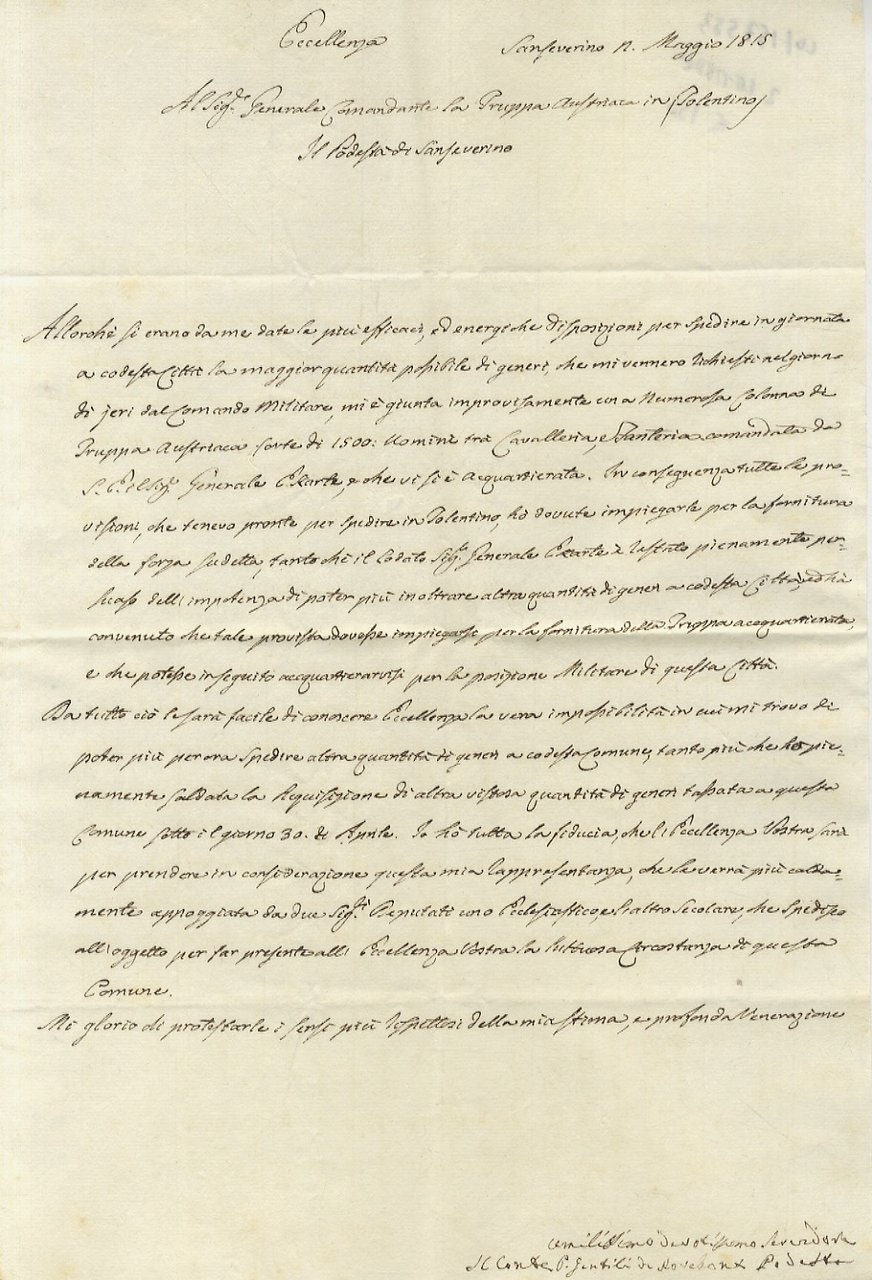 Eccellenza
Sanseverino n. Maggio 1815
Al Sig.r Generale Comandante la Truppa Austriaca in Tolentino
Il Podestà di Sanseverino
Allorchè si erano da me date le più efficaci, ed energiche disposizioni per spedire in giornata
a codesta Città la maggior quantità possibile di generi, che mi vennero richiesti nel giorno
di jeri dal Comando Militare, mi è giunta improvisamente una Numerosa Colonna di
Truppa Austriaca forte di 1500: Uomini trà Cavalleria, e Fanteria comandata da
S. E. il Sig.r Generale, e che vi si è Acquartierata. In conseguenza tutte le pro-
visioni, che tenevo pronte per spedire in Tolentino, hò dovute impiegarle per la fornitura
della forza sudetta, tanto chè il lodato Sig.r Generale è restato pienamente per-
suaso dell'impotenza di poter più inoltrare altra quantità di generi a codesta Città, ed hà
convenuto che tale provista dovesse impiegarsi per la fornitura della Truppa acquartierata,
e che potesse in seguito acquartierarvisi per la posizione Militare di questa Città.
Da tutto ciò le sarà facile di conoscere Eccellenza la vera impossibilità in cui mi trovo di
poter più per ora spedire altra quantità di generi a codesta Comune, tanto più che hò pie-
namente saldata la Requisizione di altra vistosa quantità di generi tassata a questa
Comune sotto il giorno 30. di Aprile. Io hò tutta la fiducia, che l'Eccellenza Vostra sarà
per prendere in considerazione questa mia rappresentanza, che le verrà più calda-
mente appoggiata da due Sig.ri Deputati uno Ecclesiastico, e l'altro Secolare, che spedisco
all'oggetto per far presente all'Eccellenza Vostra la luttuosa Circostanza di questa
Comune.
Mi glorio di protestarle i sensi più rispettosi della mia stima, e profonda Venerazione
umilissimo devotissimo Servidore
Il Conte P. Gentili di Podestà